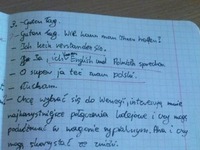 - Guten Tag.
- Guten Tag. Wie kann man Ihnen helfen?
- Ich kein verstanden sie.
- Ja Ja, ich English und Polnisch sprechen
- O super ja też mam polski.
- Słucham.
- Chcę wybrać się do Wenecji, interesują mnie
najkorzystniejsze połączenia kolejowe i czy mogę
podróżować w wagonie sypialnym. Ana i czy
mogę skorzystać ze zniżki.